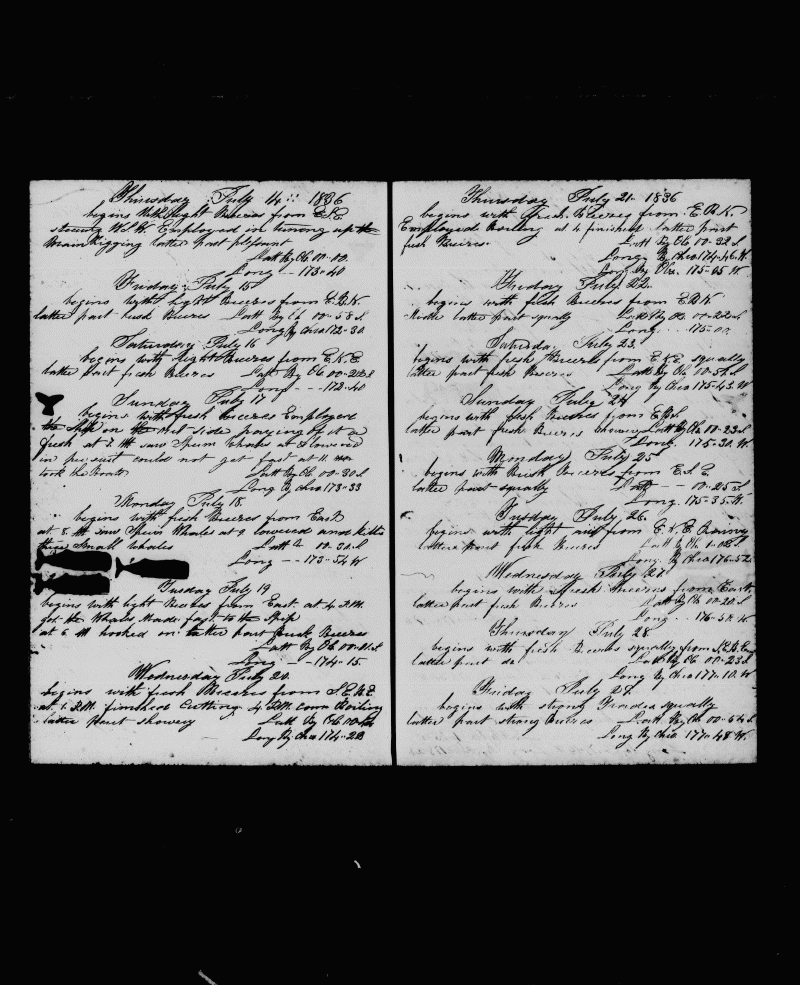 Thursday July 14 :: 1836
begins with light Breezes from E.S.E
steering W.S.W Employed in up the
Main Rigging latter part pleasant
Latt By Ob 00-00
Long - 173-40
Friday July 15
begins light light Breezes from E.S.E
latter part fresh Breezes Latt By Ob 00-58 S
Long By Chro 172-30
Saturday July 16
begins with light Breezes from E.S.E
latter part fresh Breezes Latt By Ob 00-20 S
Long - - 172-40
Sunday July 17
begins with fresh breezes Employed
the Ship on the side
fresh at saw Sperm Whales at lowered
in persuit could not get fast at 11
took the Boats Latt By Ob 00-30 S
Long By Chro 173-33
Monday July 18
begins with fresh Breezes from East
at 8 AM saw Sperm Whales at 9 lowered and killd
three Small whales Latt 00-30 S
Long - - 173-54 W
Tuesday July 19
begins with light Breezes from East at 4 P.M.
got the Whales, Made fast to the Ship
at 6 AM hooked on latter part fresh Breezes
Latt By Ob 00-01 S
Long - 174-15
Wednesday July 20
begins with fresh Breezes from S.E.
at 1 P.M. finished Cutting 4 P.M. Com Boiling
latter Part showery Latt By Ob 00
Long By Chro 174-28
Thursday July 21-1836
begins with fresh Breezes from E.
Employed Boiling at 4 finished latter part
fresh Breezes Latt By Ob 00-22 S
Long By Chro 174-46 W
Long By Obs. 175-05 W
Friday July 22
begins with fresh Breezes from
latter part squally Latt By Ob 00-22 S
Long . . 175-00
Saturday July 23
begins with fresh Breezes from squally
latter part fresh Breezes Latt By Ob 00-51 S
Long By Chro 175-43 W
Sunday July 24
begins with fresh Breezes from
latter part fresh Breezes Latt By Ob 00-23 S
Long. 175-30 W.
Monday July 25
begins with Brisk Breezes from E.S.E.
latter part squally Latt - - 00-25 S
Long. 175-35-W.
Tuesday July 26
begins with light airs from Rainy
latter part fresh Breezes Latt By Ob
Long. By Chro 176-52
Wednesday July 27
begins with fresh breezes from East
latter part fresh Breezes Latt By Ob 00-20 S
Long . 176-54 W
Thursday July 28
begins with fresh Breezes squally from
latter part do Latt By Ob 00-23 S
Long By Chro 177-10 W
Friday July 29
begins with strong Breezes squally
latter part strong Breezes Latt. By Ob 00-54 S
Long By Chro 177-48 W.